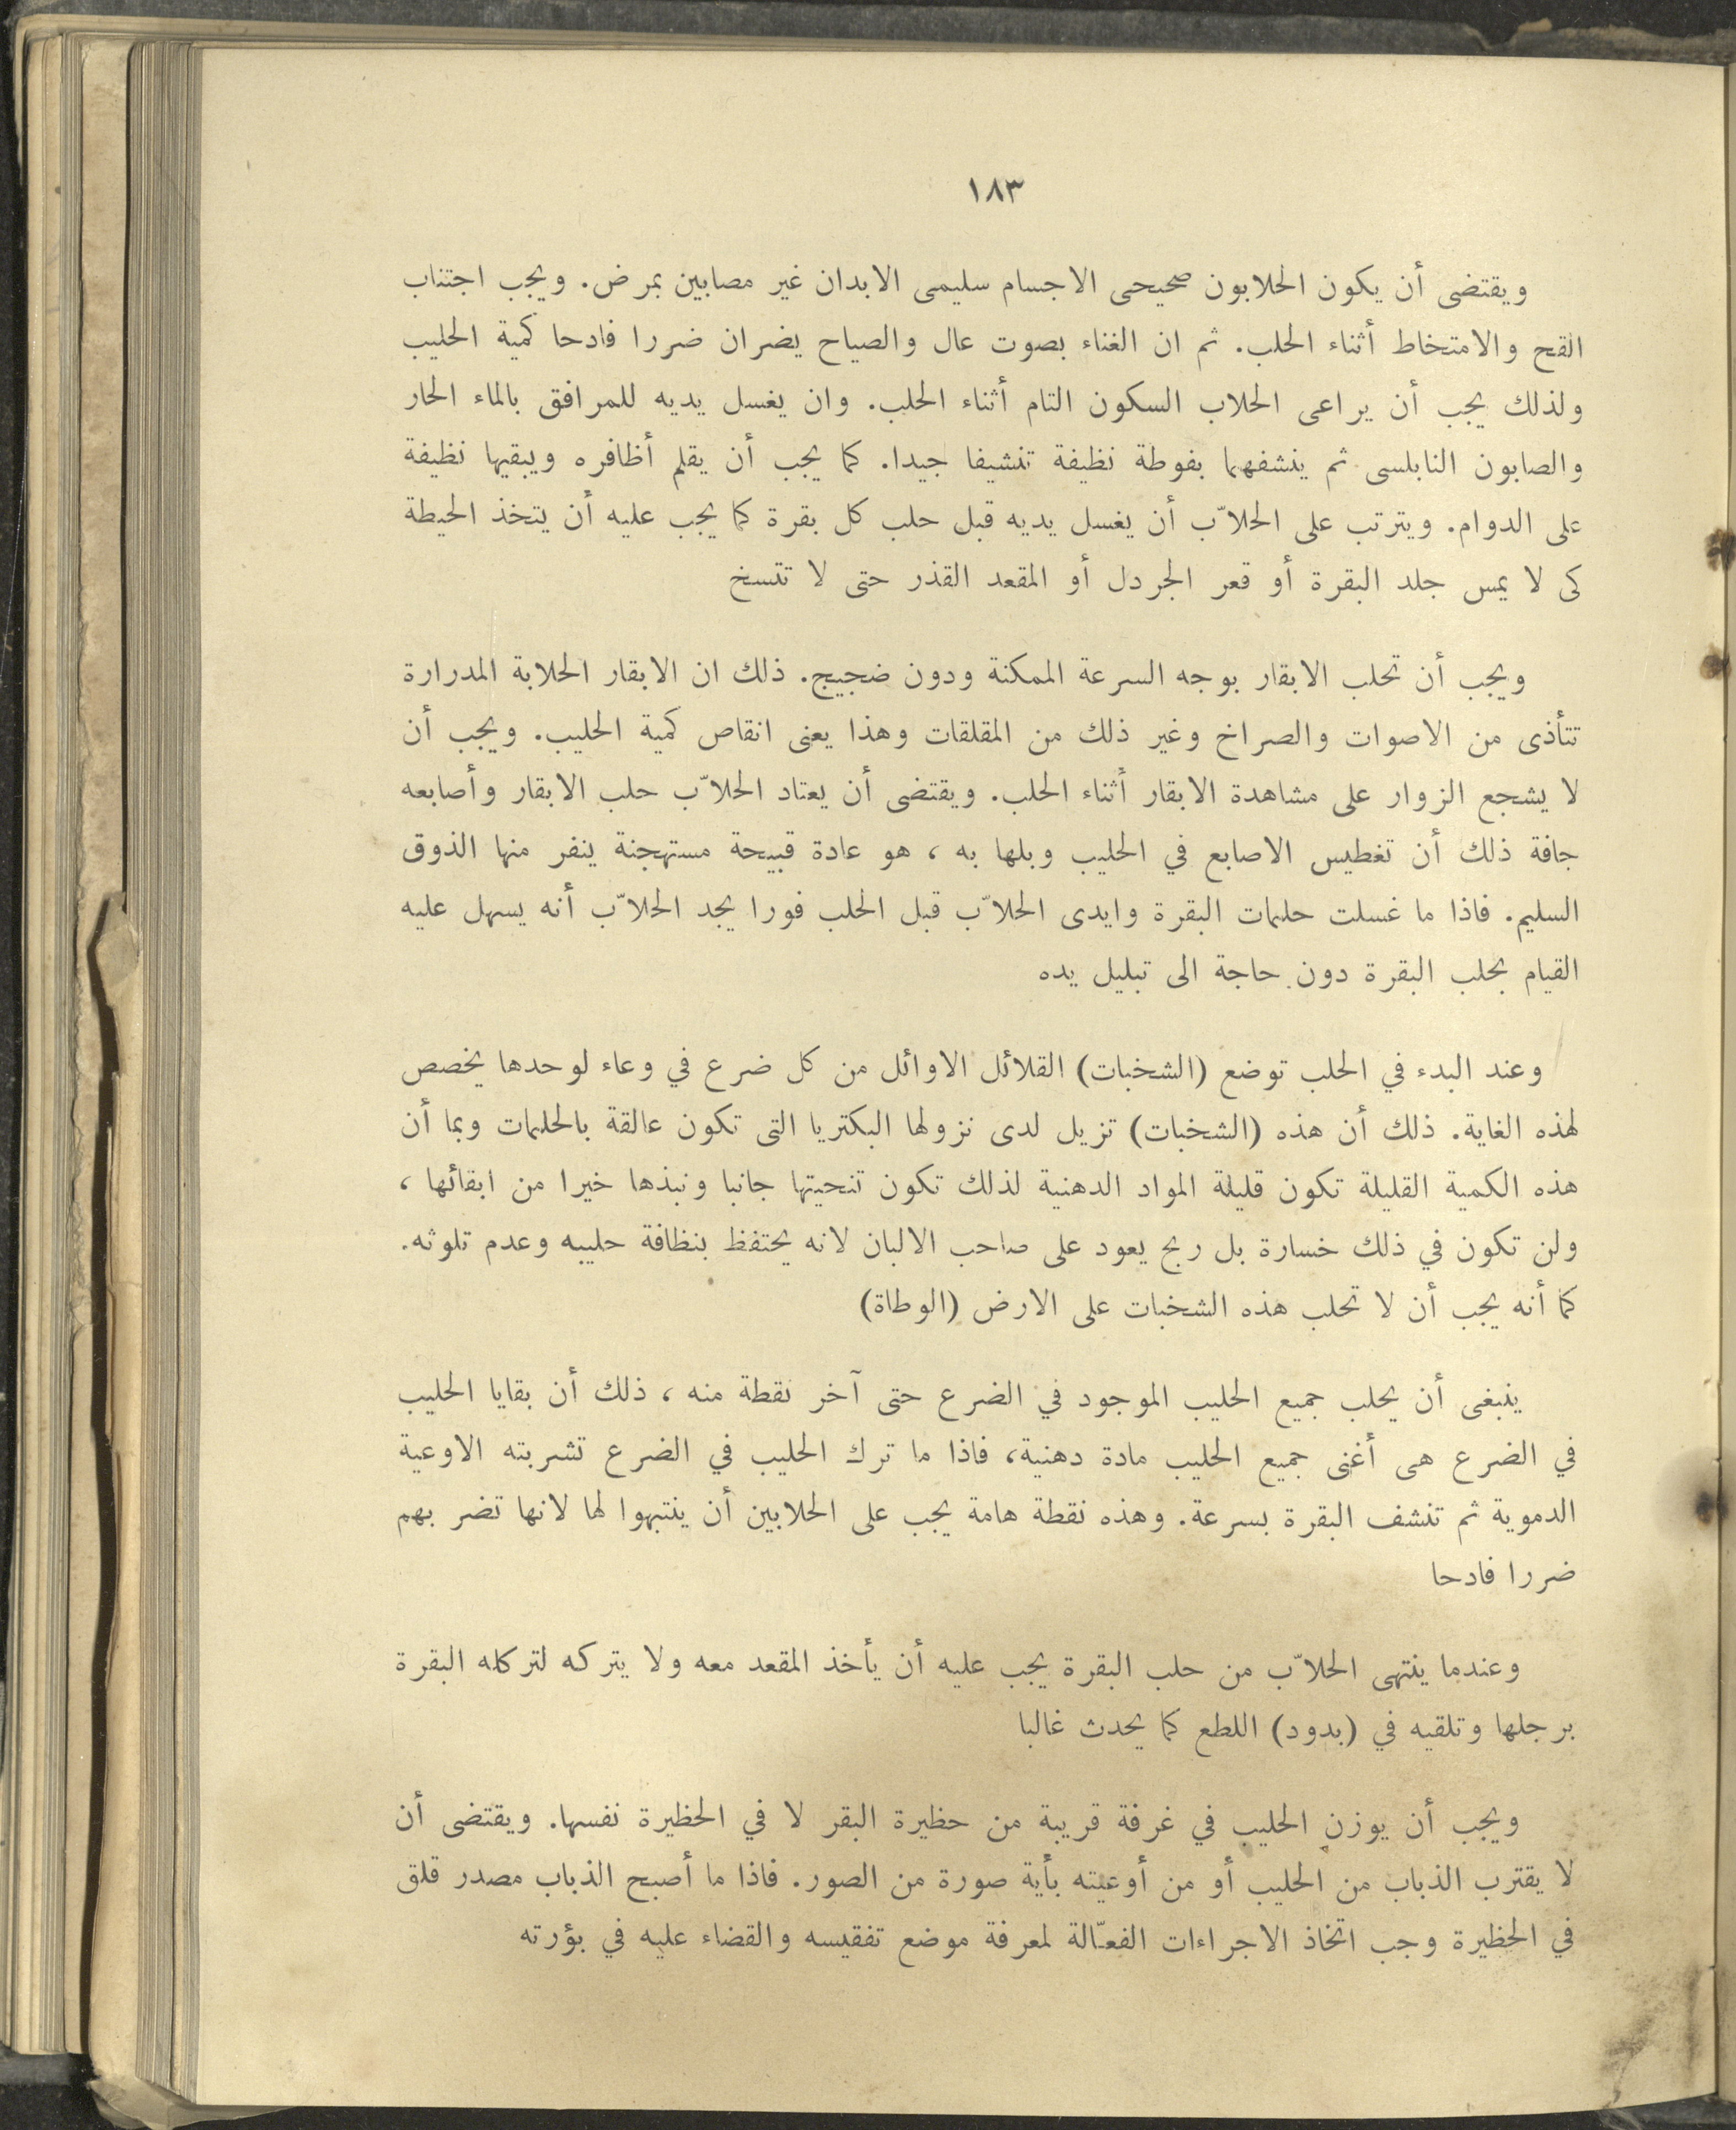 ١٨٣
ويقتضى أن يكون الحلابون صحيحى الاجسام سليمى الابدان غير مصابين بمرض. ويجب اجتناب
القح والامتخاط أثناء الحلب. ثم ان الغناء بصوت عال والصياح يضران ضررا فادحا كمية الحليب
ولذلك يجب أن يراعى الحلاب السكون التام أثناء الحلب. وان يغسل يديه للمرافق بالماء الحار
والصابون النابلسى ثم ينشفهما بفوطة نظيفة تنشيفا جيدا. كما يجب أن يقلم أظافره ويبقيها نظيفة
على الدوام. ويترتب على الحلاّب أن يغسل يديه قبل حلب كل بقرة كما يجب عليه أن يتخذ الحيطة
كى لا يمس جلد البقرة أو قعر الجردل أو المقعد القذر حتى لا تتسخ
ويجب أن تحلب الابقار بوجه السرعة الممكنة ودون ضجيج. ذلك ان الابقار الحلابة المدرارة
تتأذى من الاصوات والصراخ وغير ذلك من المقلقات وهذا يعنى انقاص كمية الحليب. ويجب أن
لا يشجع الزوار على مشاهدة الابقار أثناء الحلب. ويقتضى أن يعتاد الحلاّب حلب الابقار وأصابعه
جافة ذلك أن تغطيس الاصابع في الحليب وبلها به ، هو عادة قبيحة مستهجنة ينفر منها الذوق
السليم. فاذا ما غسلت حلمات البقرة وايدى الحلاّب قبل الحلب فورا يجد الحلاّب أنه يسهل عليه
القيام بحلب البقرة دون حاجة الى تبليل يده
وعند البدء في الحلب توضع (الشخبات) القلائل الاوائل من كل ضرع في وعاء لوحدها يخصص
لهذه الغاية. ذلك أن هذه (الشخبات) تزيل لدى نزولها البكتريا التى تكون عالقة بالحلمات وبما أن
هذه الكمية القليلة تكون قليلة المواد الدهنية لذلك تكون تنحيتها جانبا ونبذها خيرا من ابقائها ،
ولن تكون في ذلك خسارة بل ربح يعود على صاحب الالبان لانه يحتفظ بنظافة حليبه وعدم تلوثه.
كما أنه يجب أن لا تحلب هذه الشخبات على الارض (الوطاة)
ينبغى أن يحلب جميع الحليب الموجود في الضرع حتى آخر نقطة منه ، ذلك أن بقايا الحليب
في الضرع هى أغنى جميع الحليب مادة دهنية، فاذا ما ترك الحليب في الضرع تشربته الاوعية
الدموية ثم تنشف البقرة بسرعة. وهذه نقطة هامة يجب على الحلابين أن ينتبهوا لها لانها تضر بهم
ضررا فادحا
وعندما ينتهى الحلاّب من حلب البقرة يجب عليه أن يأخذ المقعد معه ولا يتركه لتركله البقرة
برجلها وتلقيه في (بدود) اللطع كما يحدث غالبا
ويجب أن يوزن الحليب في غرفة قريبة من حظيرة البقر لا في الحظيرة نفسها. ويقتضى أن
لا يقترب الذباب من الحليب أو من أوعيته بأية صورة من الصور. فاذا ما أصبح الذباب مصدر قلق
في الحظيرة وجب اتخاذ الاجراءات الفعّالة لمعرفة موضع تفقيسه والقضاء عليه في بؤرته